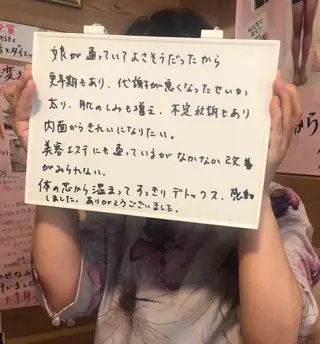 娘が通っていてよさそうだったから
更年期もあり、代謝が悪くなったせいか
太り、肌のしみも増え、不定愁訴もあり
内面からきれいになりたい。
美容エステにも通っているがなかなか改善
がみられない。
体の芯から温まってすっきりデトックス、感動
しました。ありがとうございました。